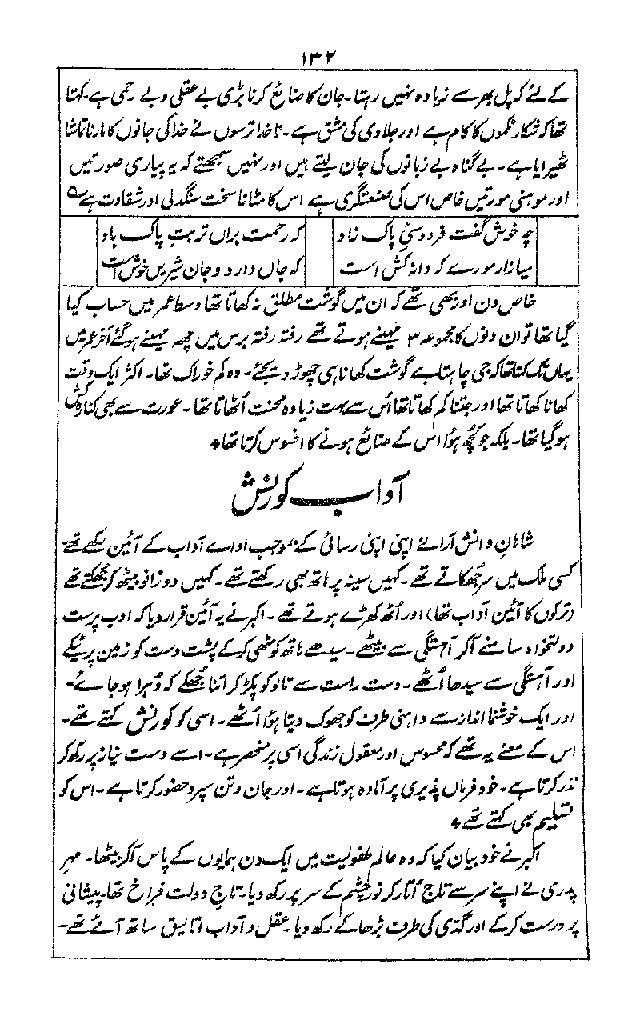 ۱۳۲
کے لئے کہ پل بھر سے زیادہ نہیں رہتا۔ جان کا ضائع کرنا بڑی بے عقلی و بے رحمی ہے۔ کہتا
تھا کہ شکار نکموں کا کام ہے اور جلادی کی مشق ہے۔ ناخدا ترسوں نے خدا کی جانوں کا مارنا تماشا
ٹھیرایا ہے۔ بے گناہ بے زبانوں کی جان لیتے ہیں اور نہیں سمجھتے کہ یہ پیاری صورتیں
اور موہنی مورتیں خاص اس کی صنعتگری ہے اس کا مٹانا سخت سنگدلی اور شقاوت ہے
چہ خوش گفت فردوسیٔ پاک زاد
کہ رحمت براں تربتِ پاک باد
میازار مورے کہ دانہ کش است
کہ جاں دارد و جان شیریں خوش است
خاص دن اور بھی تھے کہ ان میں گوشت مطلق نہ کھاتا تھا وسط عمر میں حساب کیا
گیا تھا تو ان دنوں کا مجموعہ ۳ مہینے ہوتے تھے رفتہ رفتہ برس میں چھ مہینے ہو گئے آخر عمر میں
یہاں تک کہتا تھا کہ جی چاہتا ہے گوشت کھانا ہی چھوڑ دیجئے۔ وہ کم خوراک تھا۔ اکثر ایک وقت
کھانا کھاتا تھا اور جتنا کم کھاتا تھا اُس سے بہت زیادہ محنت اُٹھاتا تھا۔ عورت سے بھی کنارہ کش
ہو گیا تھا۔ بلکہ جو کچھ ہؤا اُس کے ضائع ہونے کا افسوس کرتا تھا ٭
آداب کورنش
شاہانِ دانش آرا نے اپنی اپنی رسائی کے بموجب ادائے آداب کے آئین رکھے تھے
کسی ملک میں سر جھکاتے تھے۔ کہیں سینہ پر ہاتھ بھی رکھتے تھے۔ کہیں دو زانو بیٹھ کر جھکتے تھے
(ترکوں کا آئین آداب تھا) اور اُٹھ کھڑے ہوتے تھے۔ اکبر نے یہ آئین قرار دیا کہ ادب پرست
دولتخواہ سامنے آکر آہستگی سے بیٹھے۔ سیدھے ہاتھ کو مٹھی کرکے پشت دست کو زمین پر ٹیکے
اور آہستگی سے سیدھا اُٹھے۔ دست راست سے تالو کو پکڑ کر اتنا جھکے کہ دُہرا ہو جائے۔
اور ایک خوشنما انداز سے داہنی طرف کو جھوک دیتا ہؤا اُٹھے۔ اسی کو کورنش کہتے تھے۔
اس کے معنے یہ تھے کہ محسوس اور معقول زندگی اسی پر منحصر ہے۔ اسے دست نیاز پر رکھ کر
نذر کرتا ہے۔ خود فرماں پذیری پر آمادہ ہوتا ہے۔ اور جان و تن سپرد حضور کرتا ہے۔ اس کو
تسلیم بھی کہتے تھے ٭
اکبر نے خود بیان کیا کہ وہ عالم طفولیت میں ایک دن ہمایوں کے پاس آکر بیٹھا۔ مہر
پدری نے اپنے سر سے تاج اُتار کر نورِ چشم کے سر پر رکھ دیا۔ تاج دولت فراخ تھا۔ پیشانی
پر درست کرکے اور گُدّی کی طرف بڑھا کے رکھ دیا۔ عقل و آداب اتالیق ساتھ آئے تھے۔